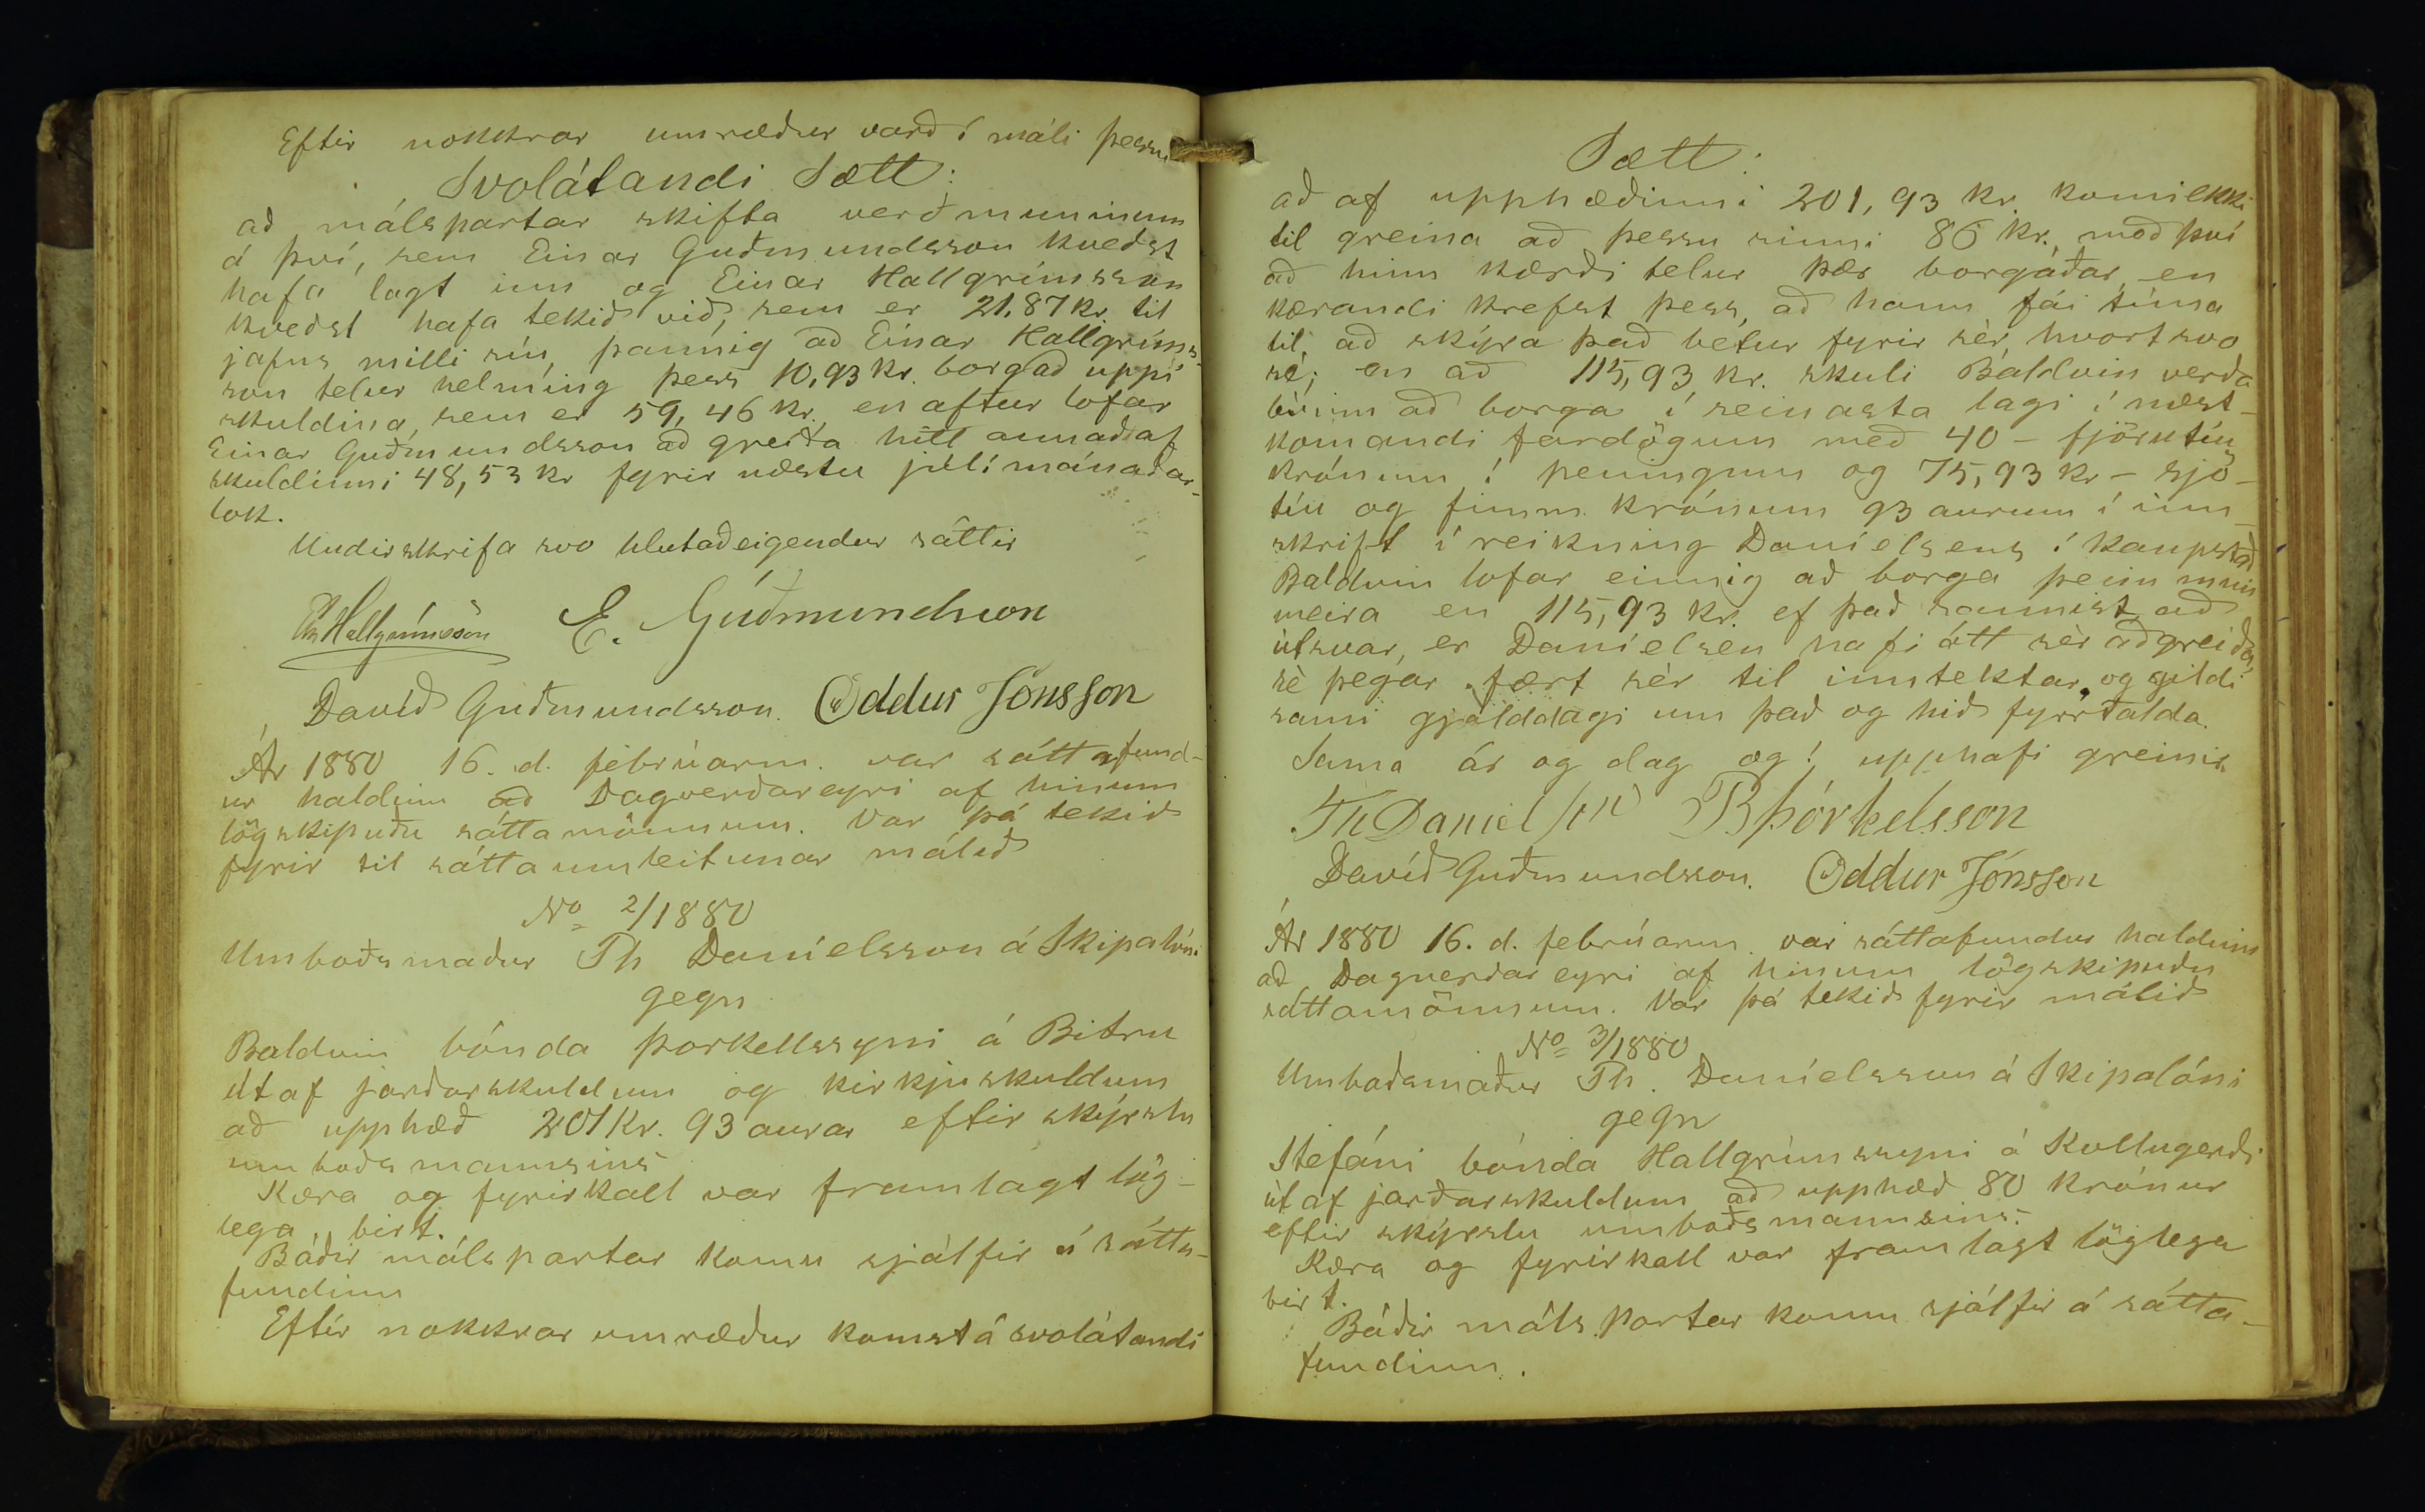 Eftir nokkrar umræður varð í máli þessu
Svolátandi Sætt:
að málspartar skifta verðmuninum
á því, sem Einar Guðmundsson kveðst
hafa lagt inn og Einar Hallgrímsson
kveðst hafa tekið við, sem er 21,87 kr. til
jafns milli sín, þannig að Einar Hallgríms-
son telur helming þess 10,93 kr. borgað uppí
skuldina, sem er 59,46 kr. en aftur lofar
Einar Guðmundsson að greiða hitt annað af
skuldinni 48,53 kr fyrir næstu júlímánaðar-
lok.
Undirskrifa svo hlutaðeigendur sáttir
E Hallgrímsson E. Guðmundsson
Davíð Guðmundsson. Oddur Jónsson
Ár 1880 16. d. febrúarm. var sáttafund-
ur haldinn að Dagverðareyri af hinum
lögskipuðu sáttamönnum. Var þá tekið
fyrir til sáttaumleitunar málið
No 2/1880
Umboðsmaður Th Daníelsson á Skipalóni
gegn
Baldvin bónda Þorkellssyni á Bitru
út af jarðarskuldum og kirkjuskuldum
að upphæð 201 kr. 93 aurar eftir skýrslu
umboðsmannsins
Kæra og fyrirkall var framlagt lög-
lega birt.
Báðir málspartar komu sjálfir á sátta-
fundinn
Eftir nokkrar umræður komst á svolátandi
Sætt:
að af upphæðinni 201,93 kr. komi ekki
til greina að þessu sinni 86 kr. með því
að hinn kærði telur þær borgaðar, en
kærandi krefst þess, að hann fái tíma
til, að skýra það betur fyrir sér, hvort svo
sé; en að 115,93 kr. skuli Baldvin verða
búinn að borga í seinasta lagi í næst-
komandi fardögum með 40 - fjörutíu
krónum í peningum og 75,93 kr - sjö-
tíu og fimm krónum 93 aurum í inn-
skrift í reikning Daníelsens í kaupstað
Baldvin lofar einnig að borga þeim mun
meira en 115,93 kr. ef það sannist að
útsvar, er Daníelsen hafi átt sér að greiða,
sè þegar fært sér til inntektar, og gildi
sami gjalddagi um það og hið fyrrtalda.
Sama ár og dag og í upphafi greinir
Th Daníelsen B Þórkelsson
Davíð Guðmundsson. Oddur Jónsson
Ár 1880 16. d. febrúarm. var sáttafundur haldinn
að Dagverðareyri af hinum lögskipuðu
sáttamönnum. Var þá tekið fyrir málið
No 3/1880
Umboðsmaður Th. Daníelsson á Skipalóni
gegn
Stefáni bónda Hallgrímssyni á Kollugerði
út af jarðarskuldum að upphæð 80 krónur
eftir skýrslu umboðsmannsins.
Kæra og fyrirkall var framlagt löglega
birt.
Báðir málspartar komu sjálfir á sátta-
fundinn.